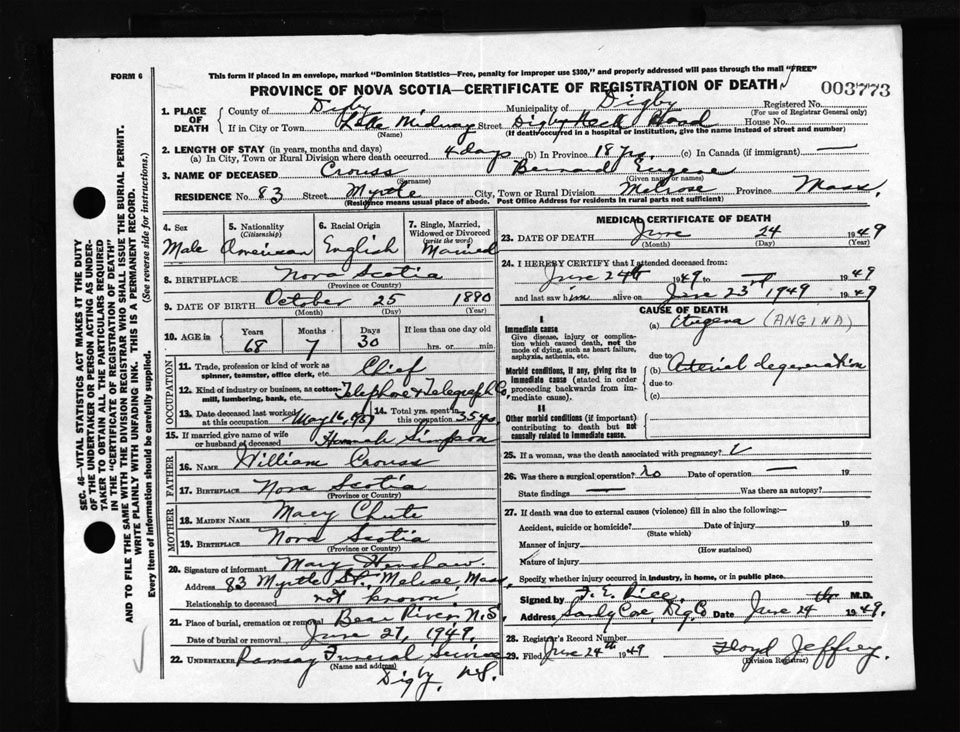 FORM 6
This form if placed in an envelope, marked "Dominion Statistics—Free, penalty for improper use $300," and properly addressed will pass through the mail "FREE"
PROVINCE OF NOVA SCOTIA—CERTIFICATE OF REGISTRATION OF DEATH
003773
1. PLACE OF DEATH
County of Digby Municipality of Digby Registered No.
(For use of Registrar General only)
If in City or Town Little Midway Street Digby Neck Road House No.
(Name) (If death occurred in a hospital or institution, give the name instead of street and number)
2. LENGTH OF STAY (in years, months and days)
(a) In City, Town or Rural Division where death occurred 4 days (b) In Province 18 yrs. (c) In Canada (if immigrant) —
3. NAME OF DECEASED Crouss Bernard Eugene
(Surname) (Given name or names)
RESIDENCE No. 83 Street Myrtle City, Town or Rural Division Melrose Province Mass.
(Residence means usual place of abode. Post Office Address for Residents in rural parts not sufficient)
4. Sex
Male
5. Nationality
(Citizenship)
American
6. Racial Origin
English
7. Single, Married, Widowed or Divorced
(write the word)
Married
8. BIRTHPLACE Nova Scotia
(Province or Country)
9. DATE OF BIRTH October 25 1880
(Month) (Day) (Year)
10. AGE in
Years Months Days If less than one day old
68 7 30 hrs. or min.
OCCUPATION
11. Trade, profession or kind of work as spinner, teamster, office clerk, etc. Chief
12. Kind of industry or business, as cotton-mill, lumbering, bank, etc. Telephone & Telegraph Co
13. Date deceased last worked at this occupation May 16,
14. Total yrs. spent in this occupation 35 yrs
15. If married give name of wife or husband of deceased Hannah Simpson
FATHER
16. NAME William Crouss
17. BIRTHPLACE Nova Scotia
(Province or Country)
MOTHER
18. MAIDEN NAME Mary Chute
19. BIRTHPLACE Nova Scotia
(Province or Country)
20. Signature of informant Mary Henshaw
Address 83 Myrtle St., Melrose Mass,
Relationship to deceased not known
21. Place of burial, cremation or removal Bear River, N.S.
Date of burial or removal June 27, 1949.
22. UNDERTAKER Ramsay Funeral Service
(Name and address)
Digby, N.S.
MEDICAL CERTIFICATE OF DEATH
23. DATE OF DEATH June 24 1949
(Month) (Day) (Year)
24. I HEREBY CERTIFY that I attended deceased from:
June 24th 1949 to 1949
and last saw him alive on June 23rd 1949 1949
CAUSE OF DEATH
I
Immediate cause
Give disease, injury or complication which caused death, not the mode of dying, such as heart failure, asphyxia, asthenia, etc.
(a) (ANGINA)
due to
Morbid conditions, if any, giving rise to immediate cause (stated in order proceeding backwards from immediate cause).
(b) Arterial degeneration
due to
(c)
II
Other morbid conditions (if important) contributing to death but not causally related to immediate cause.
25. If a woman, was the death associated with pregnancy?
26. Was there a surgical operation? no Date of operation — 19
State findings — Was there an autopsy?
27. If death was due to external causes (violence) fill in also the following:—
Accident, suicide or homicide? Date of injury 19
(State which)
Manner of injury
(How sustained)
Nature of injury
Specify whether injury occurred in industry, in home, or in public place.
Signed by F. E. Rice M.D.
Address Sandy Cove, Dig. Co Date June 24 th 1949.
28. Registrar's Record Number
29. Filed June 24th 1949 Floyd Jeffrey.
(Division Registrar)
SEC. 46—VITAL STATISTICS ACT MAKES IT THE DUTY
OF THE UNDERTAKER OR PERSON ACTING AS UNDER-
TAKER TO OBTAIN ALL THE PARTICULARS REQUIRED
IN THE "CERTIFICATE OF REGISTRATION OF DEATH"
AND TO FILE THE SAME WITH THE DIVISION REGISTRAR WHO SHALL ISSUE THE BURIAL PERMIT.
WRITE PLAINLY WITH UNFADING INK. THIS IS A PERMANENT RECORD.
Every item of Information should be carefully supplied. (See reverse side for instructions.)